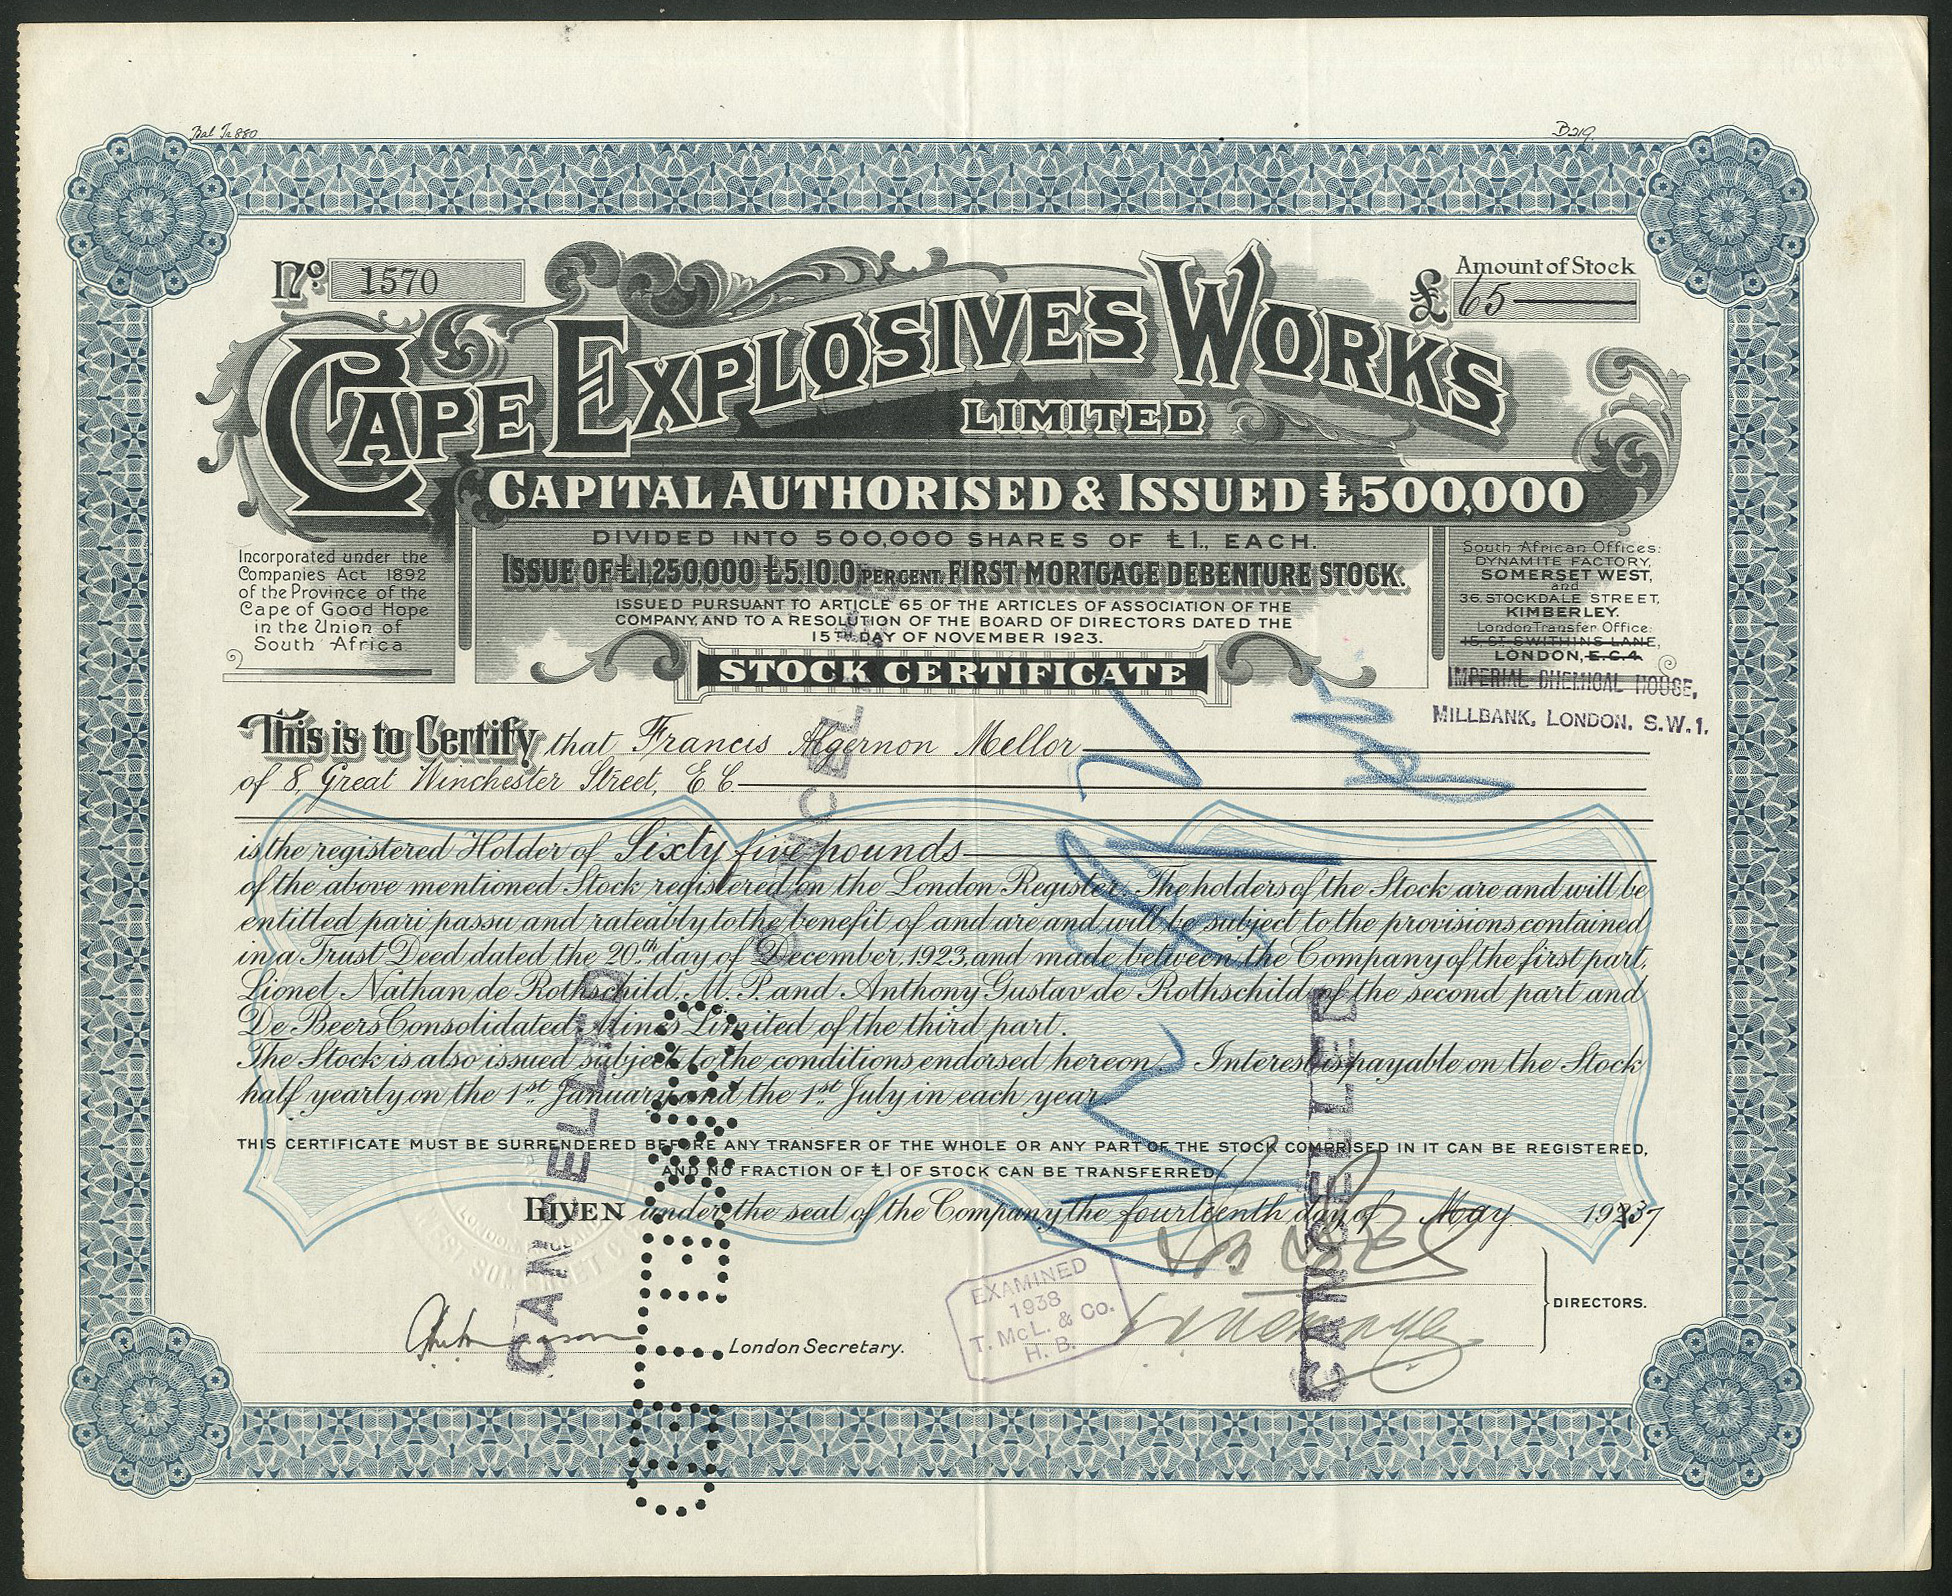 Bal Ta 880
B219.
No. 1570
Amount of Stock
£ 65
CAPE EXPLOSIVES WORKS
LIMITED
CAPITAL AUTHORISED & ISSUED £500,000
DIVIDED INTO 500,000 SHARES OF £1., EACH.
ISSUE OF £1,250,000 £5.10.0 PER CENT. FIRST MORTGAGE DEBENTURE STOCK.
ISSUED PURSUANT TO ARTICLE 65 OF THE ARTICLES OF ASSOCIATION OF THE
COMPANY, AND TO A RESOLUTION OF THE BOARD OF DIRECTORS DATED THE
15TH DAY OF NOVEMBER 1923.
STOCK CERTIFICATE
Incorporated under the
Companies Act 1892
of the Province of the
Cape of Good Hope
in the Union of
South Africa
South African Offices:
DYNAMITE FACTORY,
SOMERSET WEST,
and
36, STOCKDALE STREET,
KIMBERLEY.
London Transfer Office:
15, ST. SWITHINS LANE,
LONDON, E.C.4.
IMPERIAL CHEMICAL HOUSE,
MILLBANK, LONDON. S.W.1.
This is to Certify that Francis Algernon Mellor
of 8, Great Winchester Street, E C
is the registered Holder of Sixty five pounds
of the above mentioned Stock registered on the London Register. The holders of the Stock are and will be
entitled pari passu and rateably to the benefit of and are and will be subject to the provisions contained
in a Trust Deed dated the 20th day of December, 1923, and made between the Company of the first part,
Lionel Nathan de Rothschild, M.P. and Anthony Gustav de Rothschild of the second part and
De Beers Consolidated Mines Limited of the third part.
The Stock is also issued subject to the conditions endorsed hereon. Interest is payable on the Stock
half yearly on the 1st January and the 1st July in each year.
THIS CERTIFICATE MUST BE SURRENDERED BEFORE ANY TRANSFER OF THE WHOLE OR ANY PART OF THE STOCK COMPRISED IN IT CAN BE REGISTERED,
AND NO FRACTION OF £1 OF STOCK CAN BE TRANSFERRED.
GIVEN under the seal of the Company the fourteenth day of May 1937
DIRECTORS.
London Secretary.
EXAMINED
1938
T. McL. & Co.
H. B.
CANCELLED
CANCELLED
CANCELLED